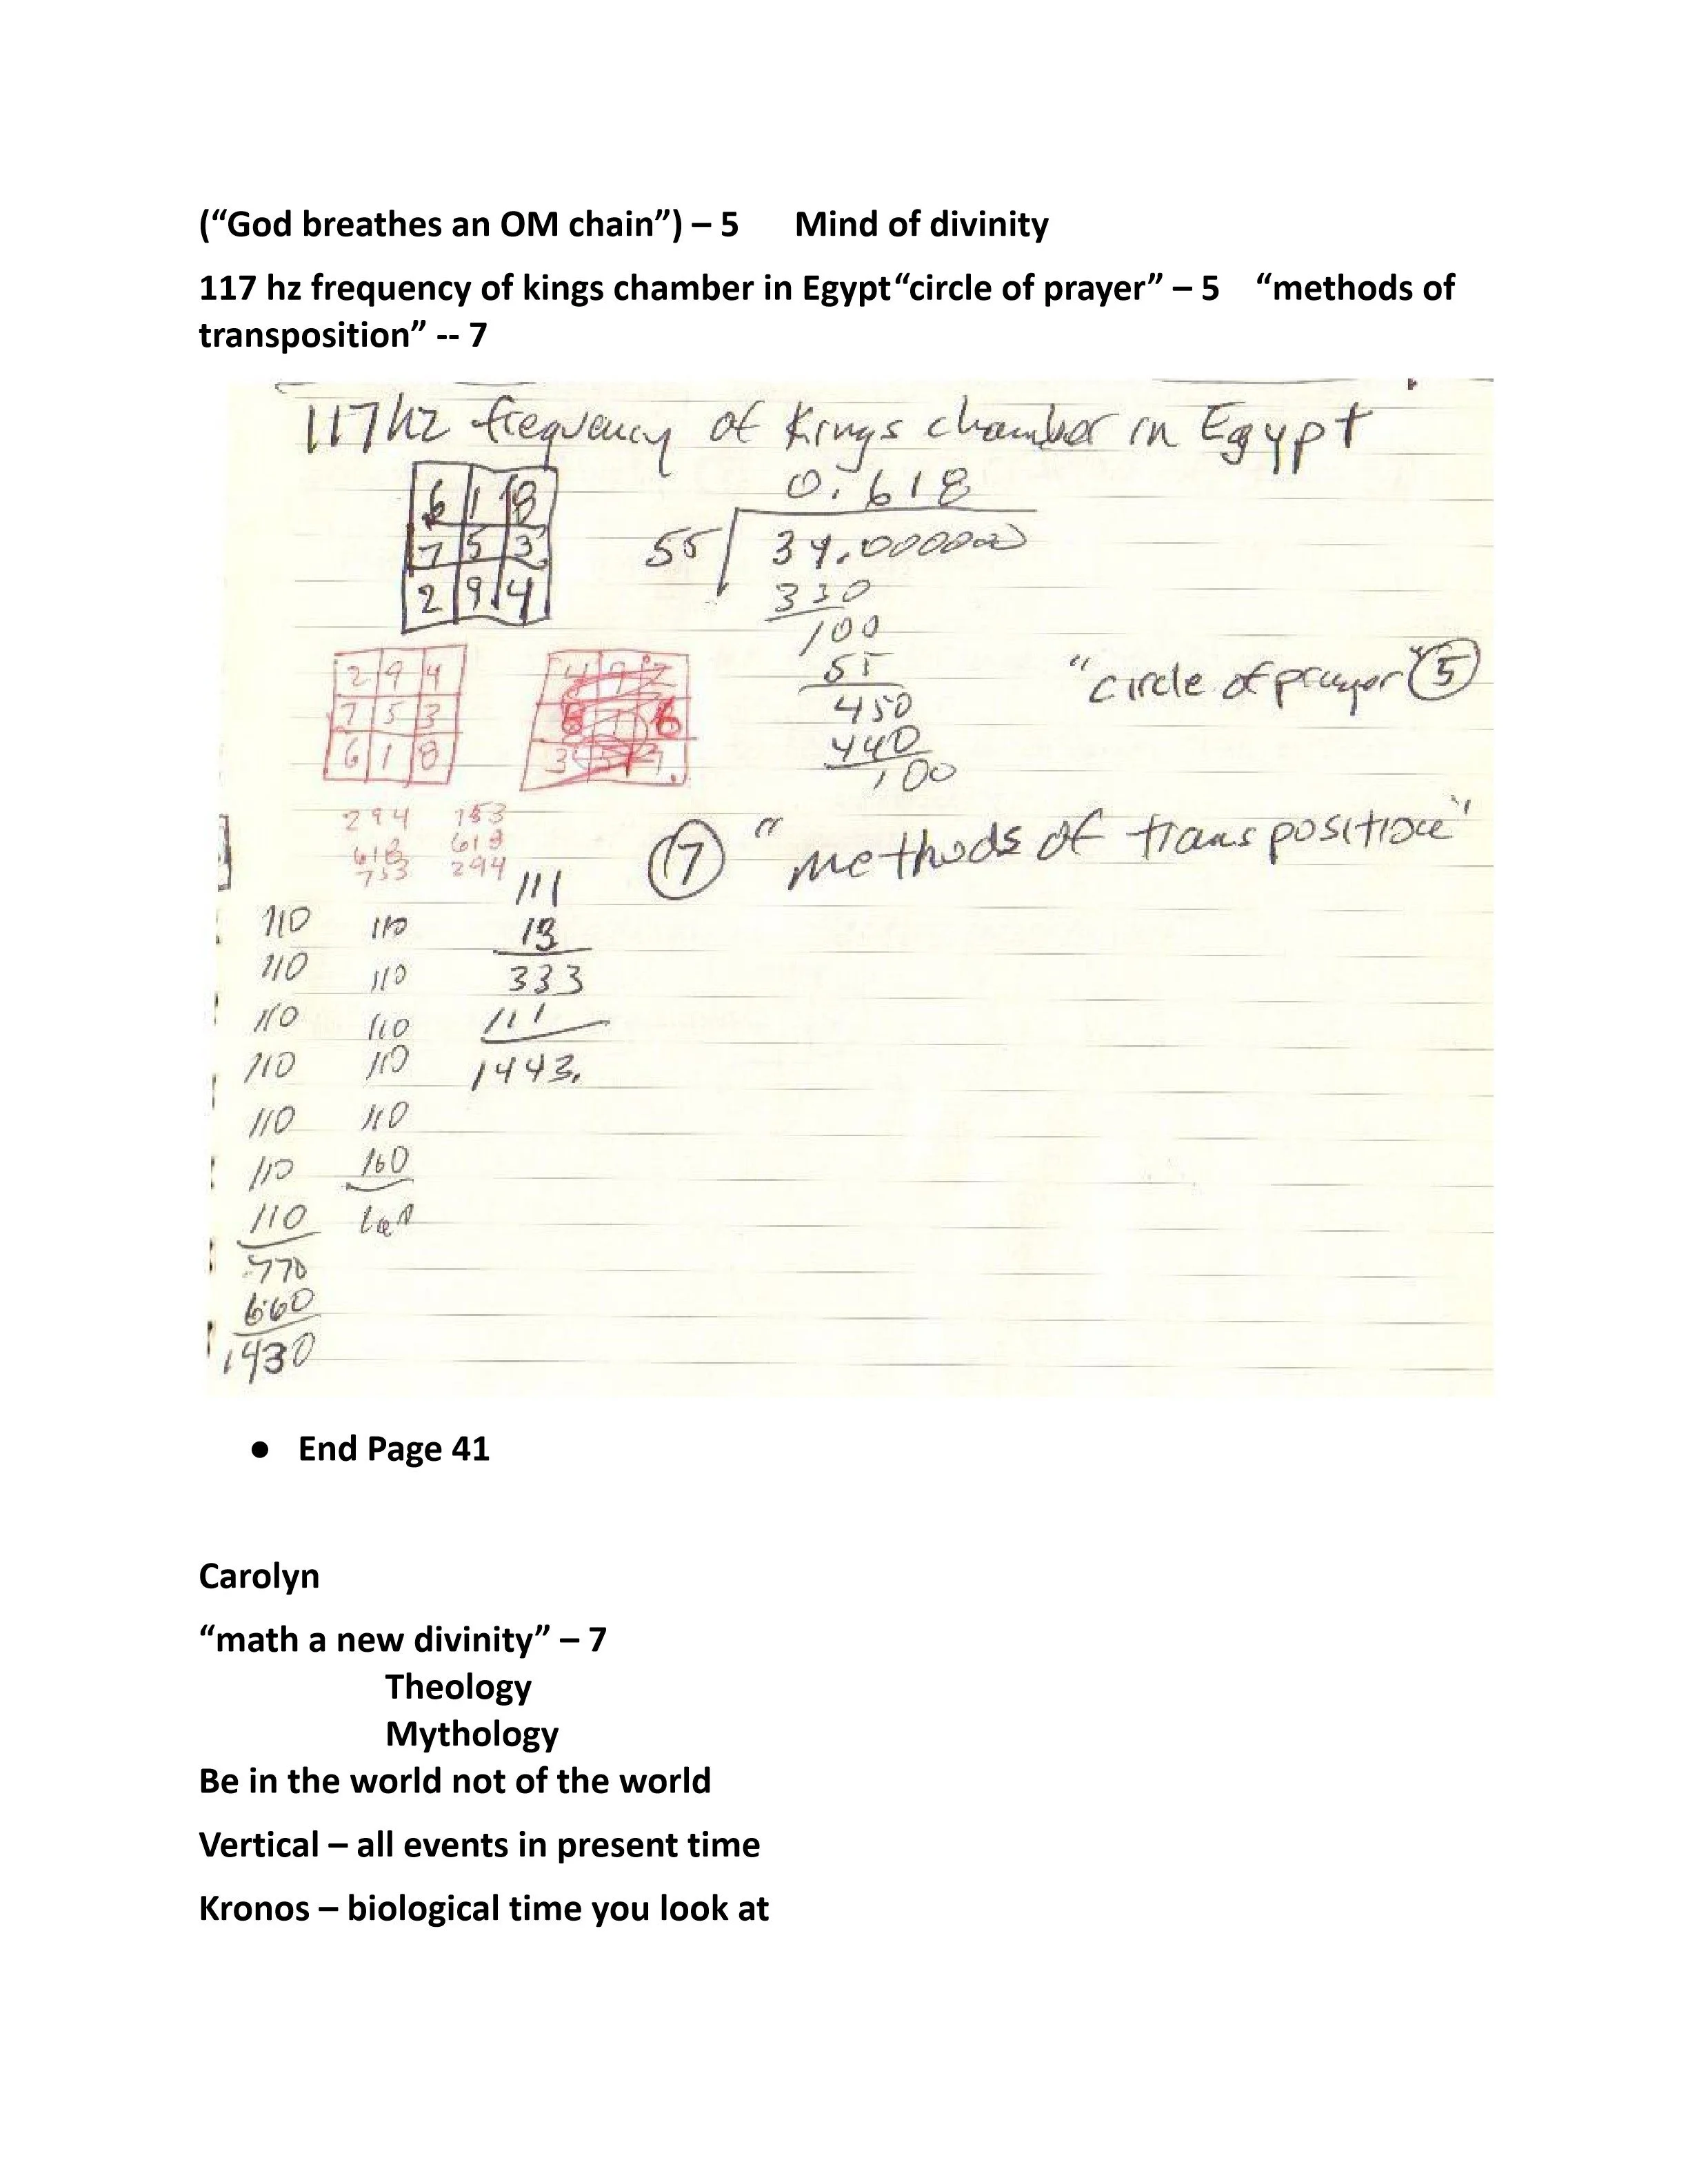 (“God breathes an OM chain”) – 5 Mind of divinity
117 hz frequency of kings chamber in Egypt“circle of prayer” – 5 “methods of
transposition” -- 7
117hz frequency of Kings chamber in Egypt
6 1 8
7 5 3
2 9 4
0.618
55 34.000000
330
100
55
450
440
100
"circle of prayer" 5
2 9 4
7 5 3
6 1 8
294 753
618 618
753 294
7 "methods of transposition"
111
13
333
111
1443.
110 110
110 110
110 110
110 110
110 110
110 160
110
770
660
1430
● End Page 41
Carolyn
“math a new divinity” – 7
Theology
Mythology
Be in the world not of the world
Vertical – all events in present time
Kronos – biological time you look at